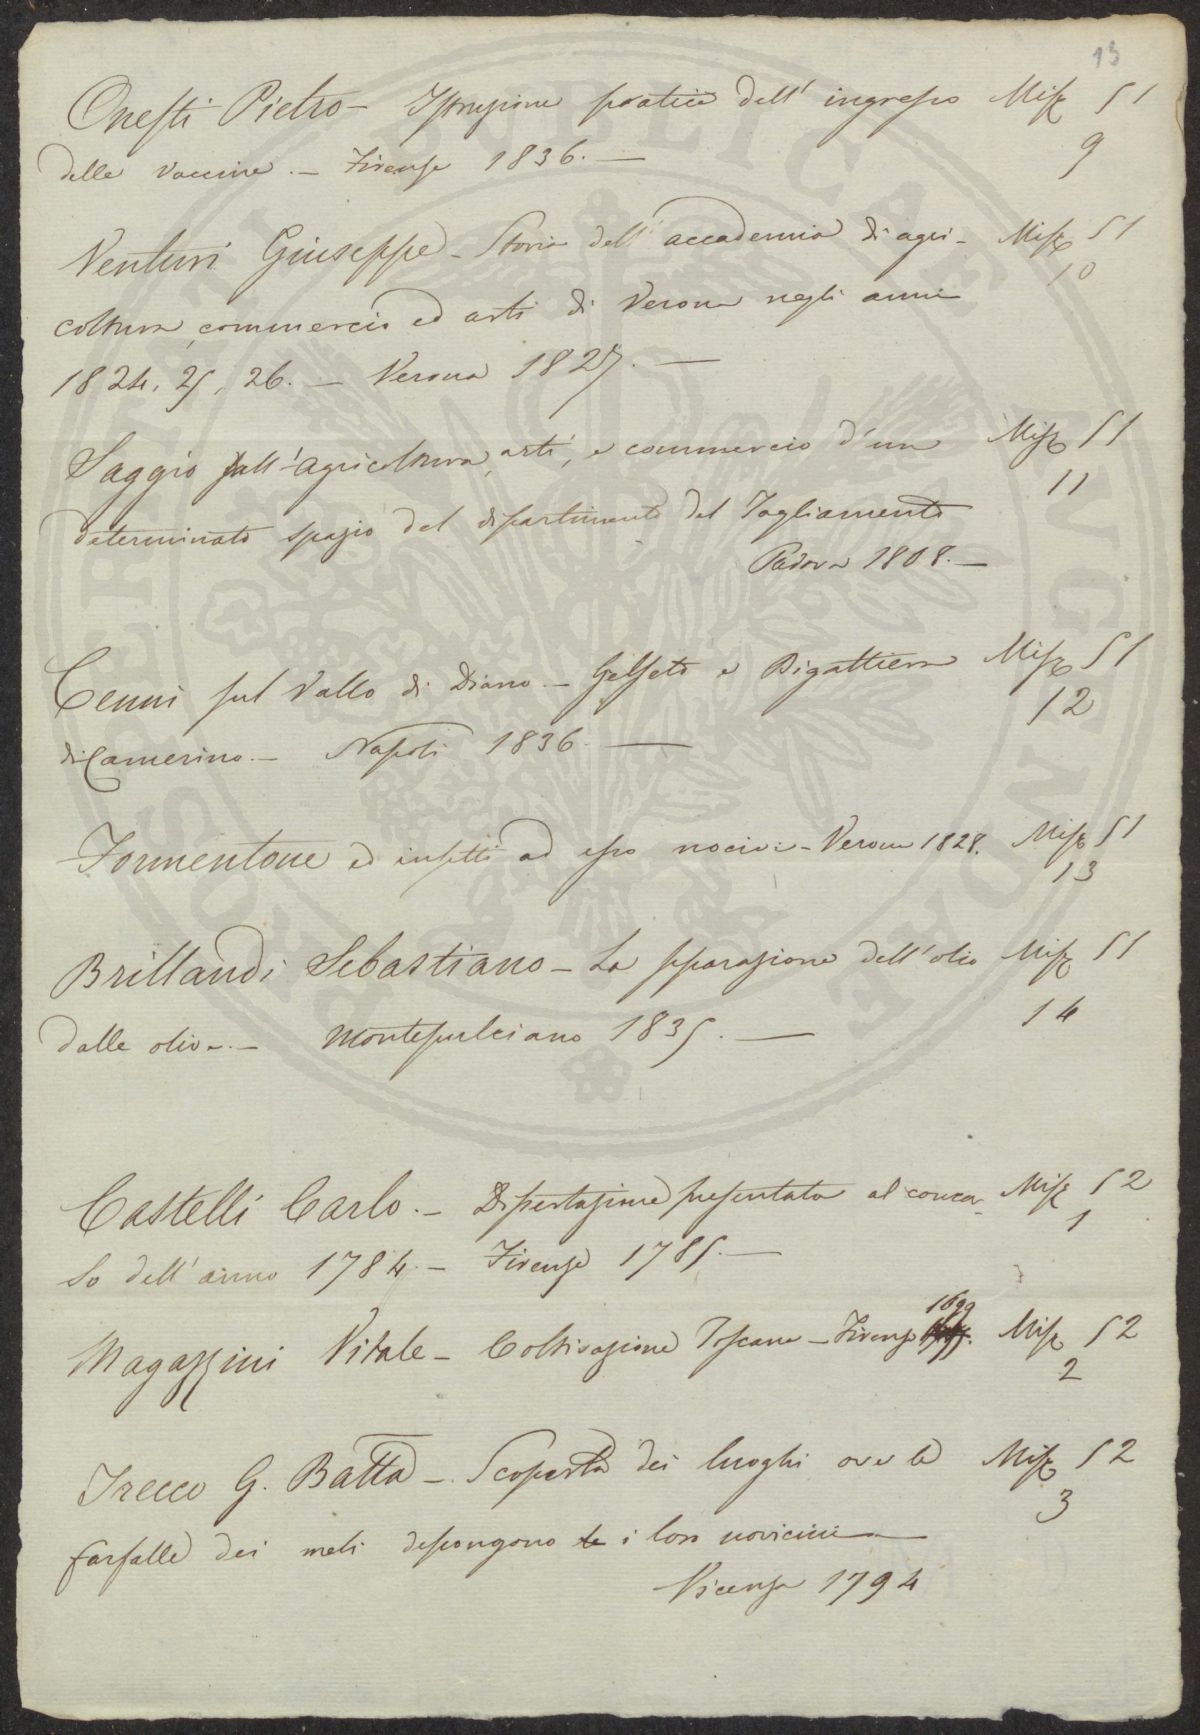 13
Onesti Pietro – Istruzione pratica dell' ingresso Misc 51
delle vaccine. – Firenze 1836. — 9
Venturi Giuseppe – Storia dell' accademia di agri- Misc 51
10
coltura, commercio ed arti di Verona negli anni
1824, 25, 26. – Verona 1827. —
Saggio sull' agricoltura, arti, e commercio d'un Misc 51
11
determinato spazio del dipartimento del Tagliamento
Padova 1808. —
Cenni sul Vallo di Diano. – Gelseto e Bigattiera Misc 51
12
di Camerino. – Napoli 1836. —
Formentone ed insetti ad esso nocivi – Verona 1828. Misc 51
13
Brillandi Sebastiano – La separazione dell' olio Misc 51
14
dalle olive. – Montepulciano 1835. —
Castelli Carlo. – Dissertazione presentata al concor- Misc 52
1
so dell' anno 1784. – Firenze 1785. —
Magazzini Vitale – Coltivazione Toscana – Firenze 1699. Misc 52
2
Trecco G. Batta – Scoperta dei luoghi ove le Misc 52
3
farfalle dei meli depongono i loro
Vicenza 1794